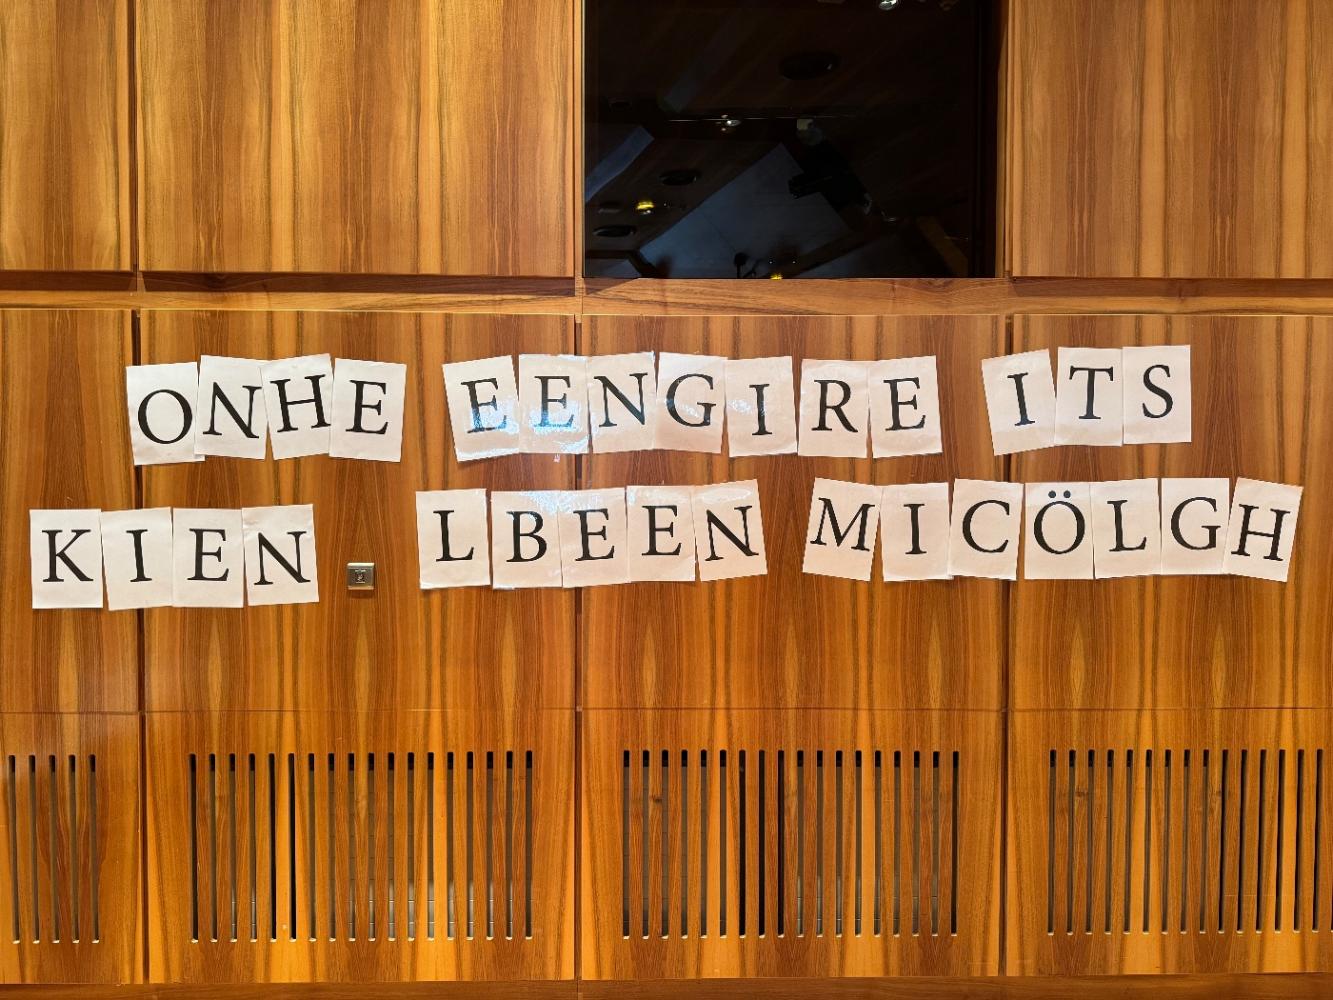 ONHE EENGIRE ITS
KIEN LBEEN MICÖLGH